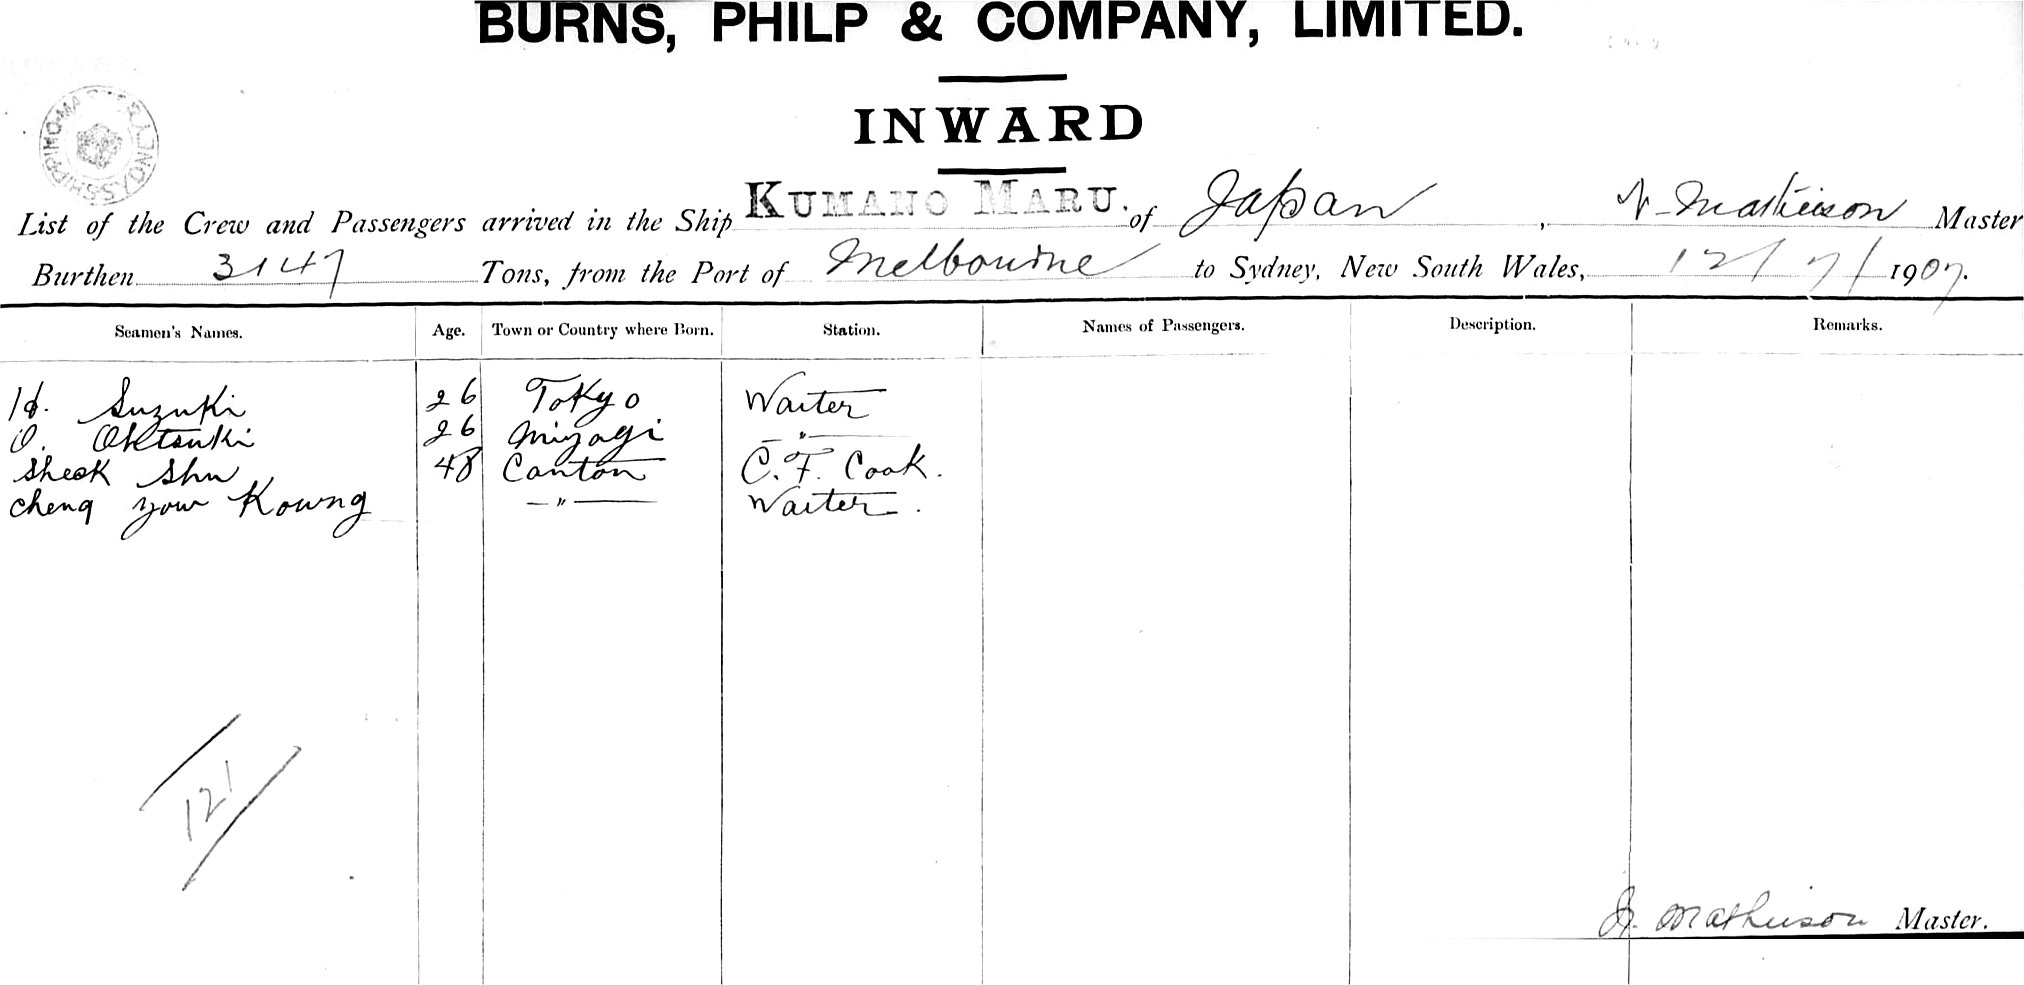 BURNS, PHILP & COMPANY, LIMITED.
INWARD
List of the Crew and Passengers arrived in the Ship KUMANO MARU. of Japan, N. Mathieson Master
Burthen 3147 Tons, from the Port of Melbourne to Sydney, New South Wales, 12/7/1907.
Seamen's Names. Age. Town or Country where Born. Station. Names of Passengers. Description. Remarks.
H. Suzuki 26 Tokyo Waiter
O. Ohtsuki 26 Miyagi — " —
Sheok Shu 48 Canton C. F. Cook.
Cheng You Kowng — " — Waiter.
121
N. Mathieson Master.